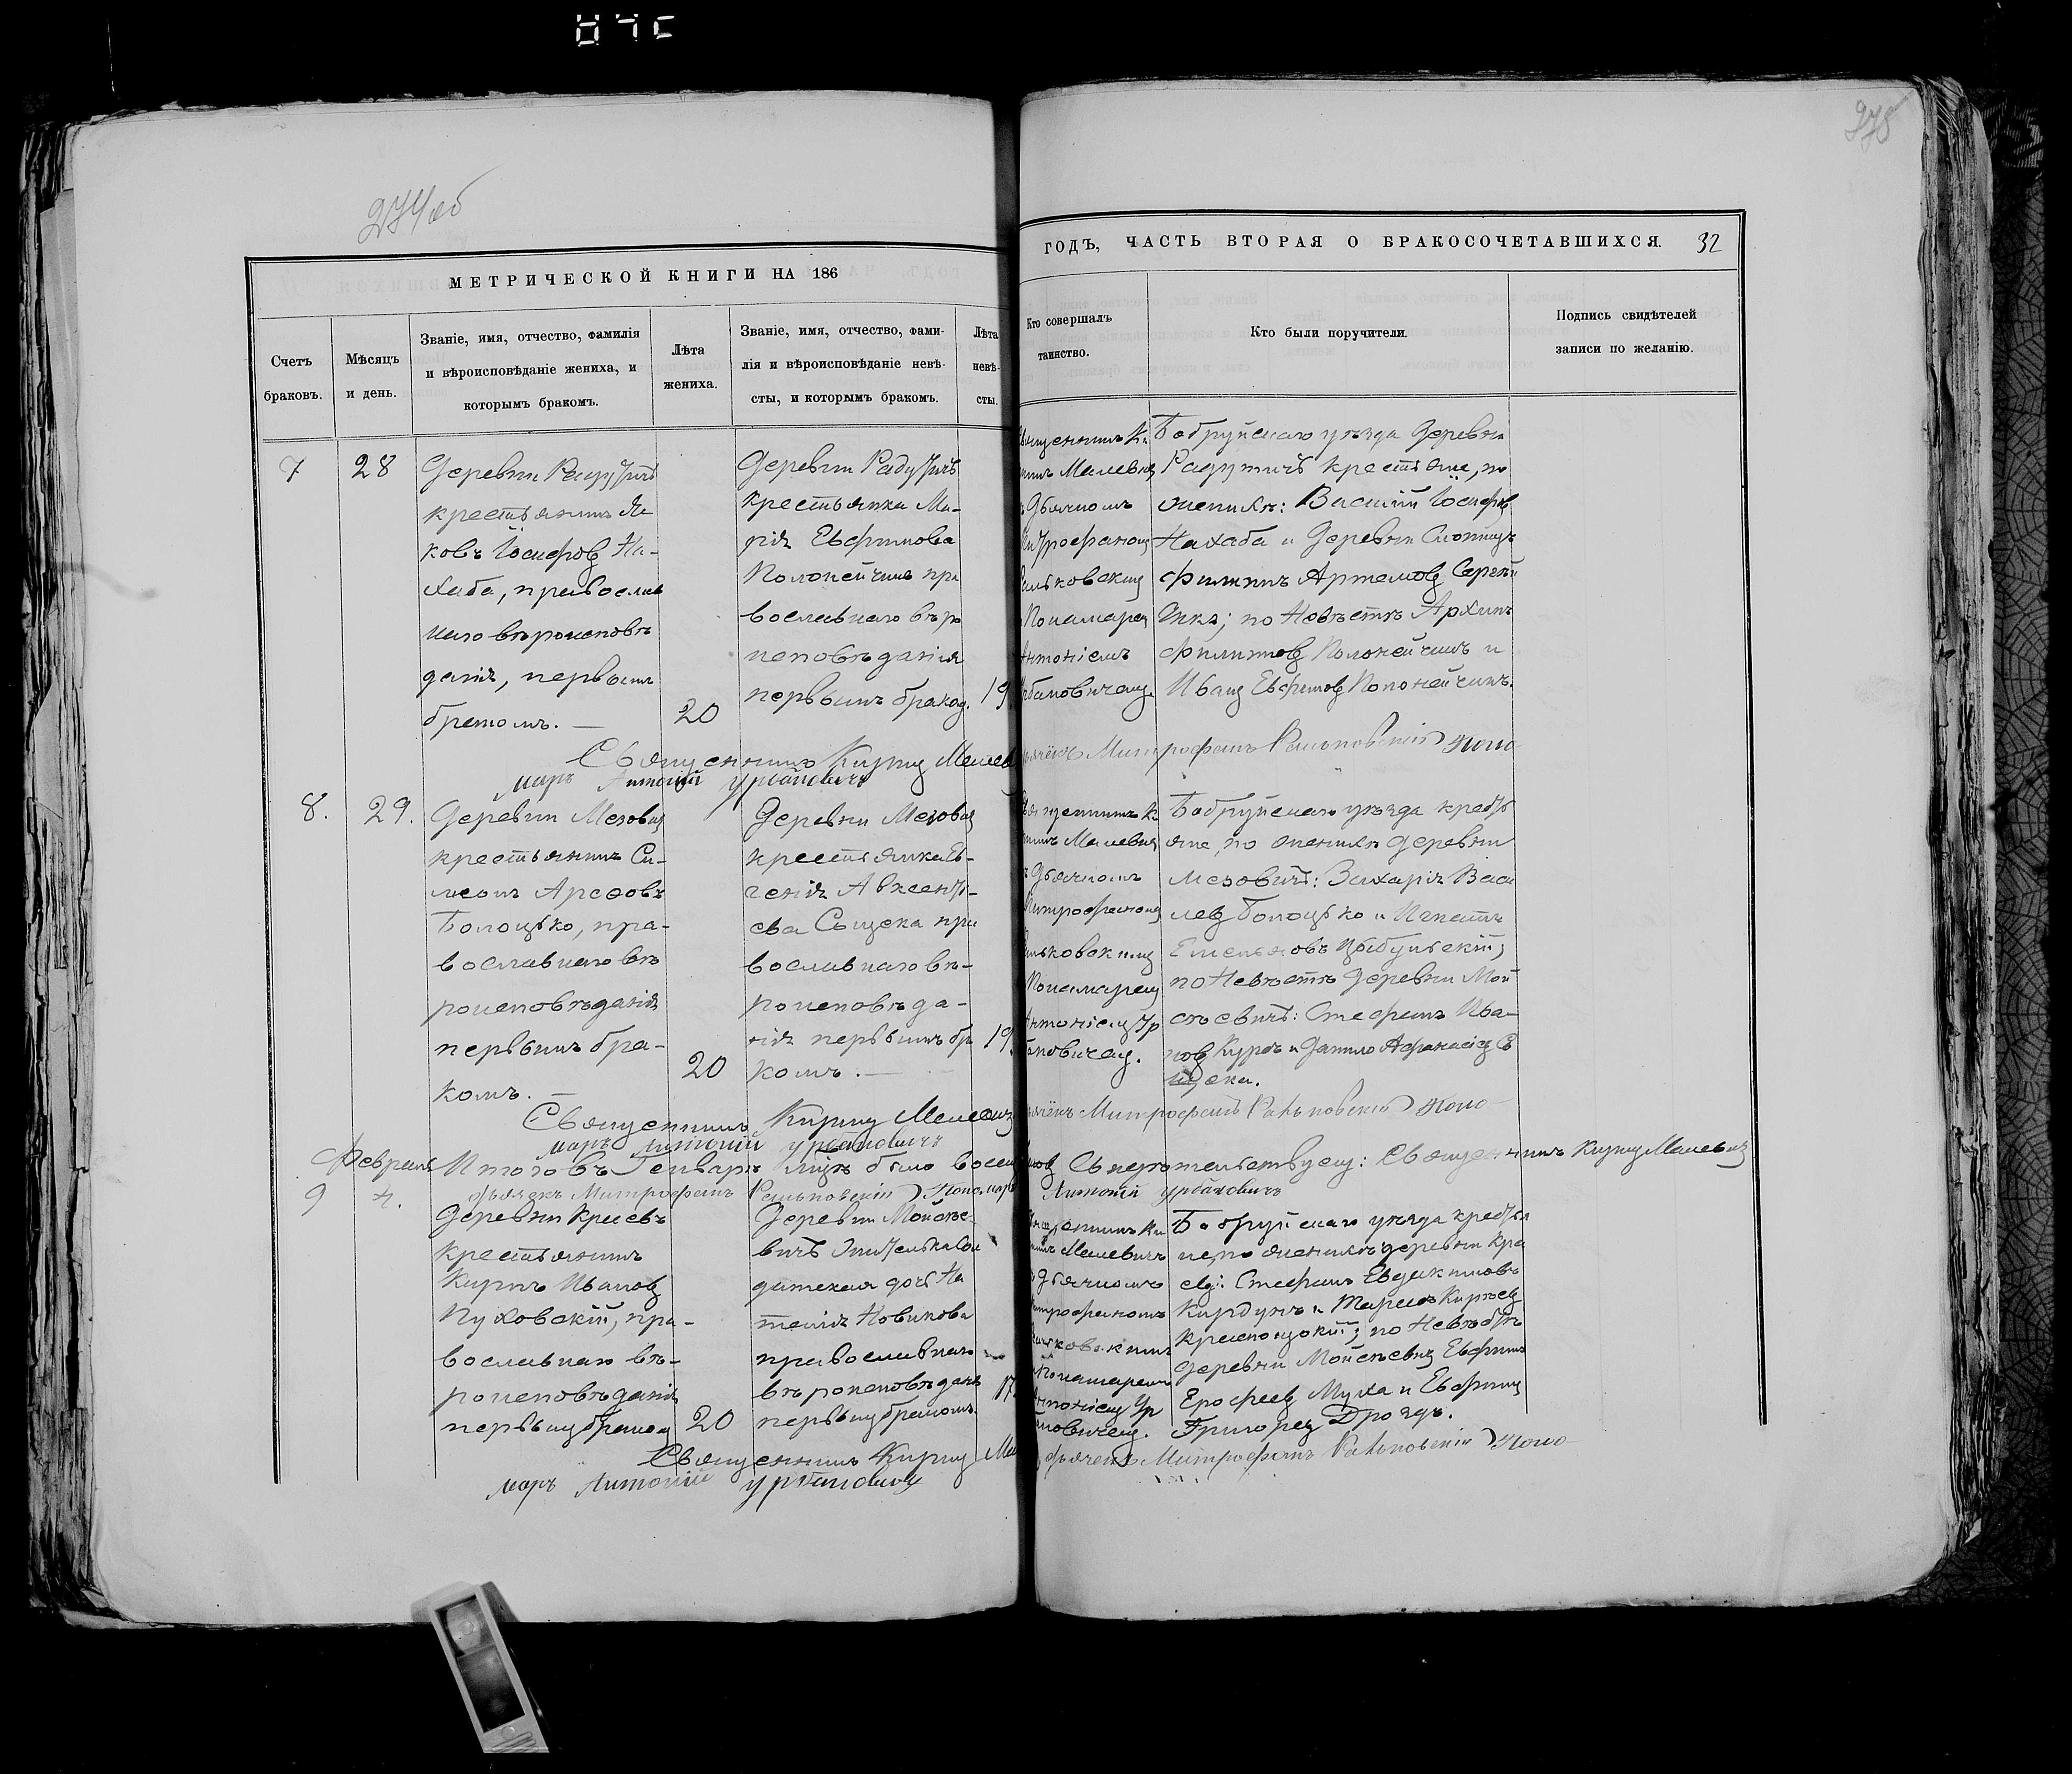 274об
278
МЕТРИЧЕСКОЙ КНИГИ НА 186
ГОДЪ, ЧАСТЬ ВТОРАЯ О БРАКОСОЧЕТАВШИХСЯ. 32
Счетъ
браковъ.
Мѣсяцъ
и день.
Званіе, имя, отчество, фамилія
и вѣроисповѣданіе жениха, и
которымъ бракомъ.
Лѣта
жениха.
Званіе, имя, отчество, фами-
лія и вѣроисповѣданіе невѣ-
сты, и которымъ бракомъ.
Лѣта
невѣ-
сты.
Кто совершалъ
таинство.
Кто были поручители.
Подпись свидѣтелей
записи по желанію.
7
28
Деревни Радутичь
крестьянинъ Яа-
ковъ Іосифовъ На-
хаба, православ
наго вѣроисповѣ
данія, первымъ
бракомъ. —
20
Деревни Радутичь
крестьянка Ма-
рія Евфимова
Полопейчикъ пра
вославнаго вѣро
исповѣданія
первымъ бракомъ.
19
Священникъ Ки
Малевичъ
Дьячкомъ
Митрофаномъ
Раньковскимъ
Понамаремъ
Антоніемъ
Урбановичемъ.
Бобруйскаго уѣзда деревни
Радутичь крестьяне, по
женихѣ: Василій Іосифовъ
Нахаба и деревни
Филиппъ Артемовъ
по Невѣстѣ Архипъ
Филиповъ Полопейчикъ и
Иванъ Евфимовъ Полопейчикъ.
Священникъ Кирилъ Малевичъ
дьячёкъ Митрофанъ Раньковскій Поно
марь Антоній Урбановичъ
8.
29.
Деревни Мезовичь
крестьянинъ Си-
меонъ
Болоцько, пра-
вославнаго вѣ
роисповѣданія
первымъ бра-
комъ. —
20
Деревни Мезовичь
крестьянка Ев-
генія Авксенть-
ева Сыцека пра
вославнаго вѣ-
роисповѣда-
нія первымъ бра
комъ. —
19
Священникъ Ки
Малевичъ
Дьячкомъ
Митрофаномъ
Раньковскимъ
Понамаремъ
Антоніемъ Ур
бановичемъ.
Бобруйскаго уѣзда кресть
яне, по женихѣ деревни
Мезовичь: Захарія Васи
левъ Болоцько и Игнатъ
Емельяновъ Цыбульскій;
по Невѣстѣ деревни Мой
сѣевичь: Стефанъ Ива-
новъ и Данило Афанасіевъ С
ыцека.
Священникъ Кирилъ Малевичъ
дьячёкъ Митрофанъ Раньковскій Поно
марь Антоній Урбановичъ
Февраль
Итого въ Генварѣ мцѣ было восемь
браковъ Свидѣтельствуемъ: Священникъ Кирилъ Малевичъ
дьячекъ Митрофанъ Раньковскій Пономарь Антоній Урбановичъ
9
4.
Деревни Краевъ
крестьянинъ
Кирилъ Ивановъ
Пуховскій, пра-
вославнаго вѣ-
роисповѣданія
первымъ бракомъ
20
Деревни Мойсѣе-
вичь
датская дочь На
талія Новикова
православнаго
вѣроисповѣданія
первымъ бракомъ.
17
Священникъ Ки
Малевичъ
Дьячкомъ
Митрофаномъ
Раньковскимъ
Понамаремъ
Антоніемъ Ур
бановичемъ.
Бобруйскаго уѣзда кресть
не, по женихѣ деревни Кра
евъ: Стефанъ Евдокимовъ
и Тарасъ
по Невѣстѣ
деревни Мойсѣевичь Евфимъ
Ерофеевъ Муха и Евфимъ
Григорьевъ Дроздъ.
Священникъ Кирилъ Ма
дьячекъ Митрофанъ Раньковскій Поно
марь Антоній Урбановичъ